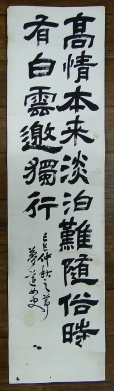 高情本来淡泊難随俗時
有白雲邀獨行